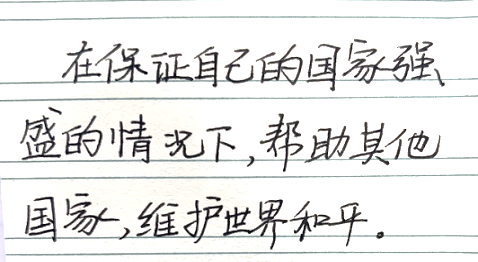 在保证自己的国家强
盛的情况下,帮助其他
国家,维护世界和平。